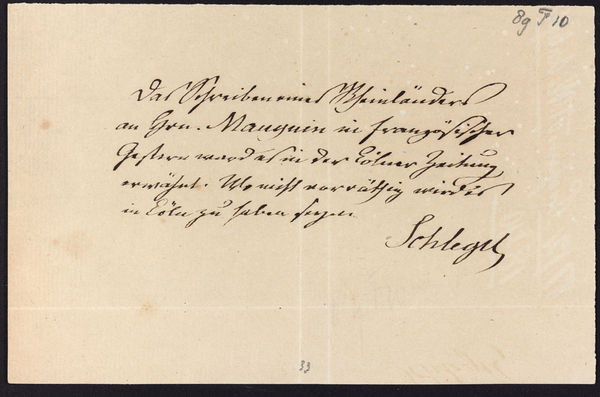 89 F 10
Das Schreiben eines Rheinländers
an Hrn. Mauguin in französischer
Gestern ward es in der Cölner Zeitung
erwähnt. Wo nicht vorräthig wird es
in Cöln zu haben seyn.
Schlegel
33